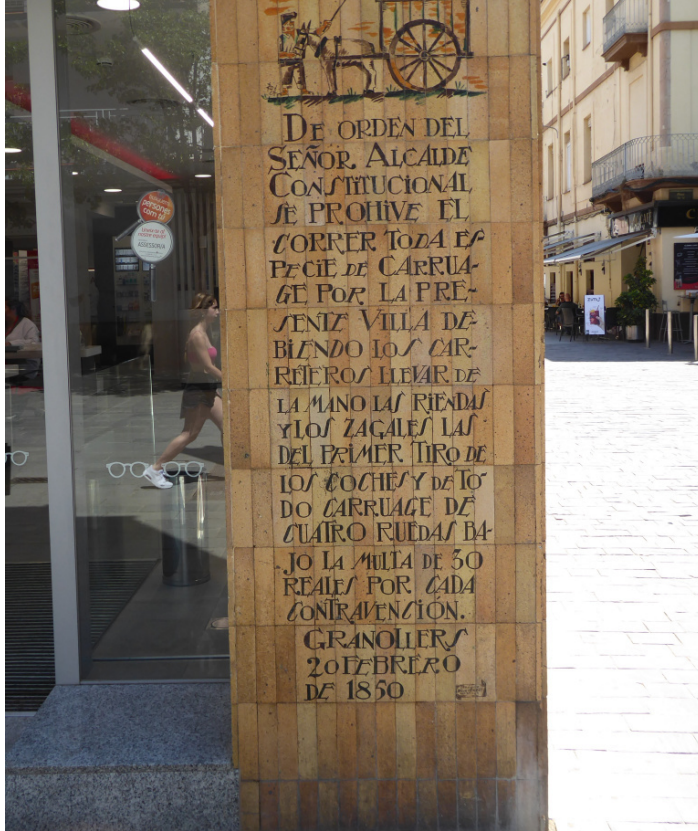 DE ORDEN DEL
SEÑOR ALCALDE
CONSTITUCIONAL
SE PROHIVE EL
CORRER TODA ES-
PECIE DE CARRUA-
GE POR LA PRE-
SENTE VILLA DE-
BIENDO LOS CAR-
RETEROS LLEVAR DE
LA MANO LAS RIENDAS
Y LOS ZAGALES LAS
DEL PRIMER TIRO DE
LOS COCHES Y DE TO-
DO CARRUAGE DE
CUATRO RUEDAS BA-
JO LA MULTA DE 30
REALES POR CADA
CONTRAVENCION.
GRANOLLERS
20 FEBRERO
DE 1850